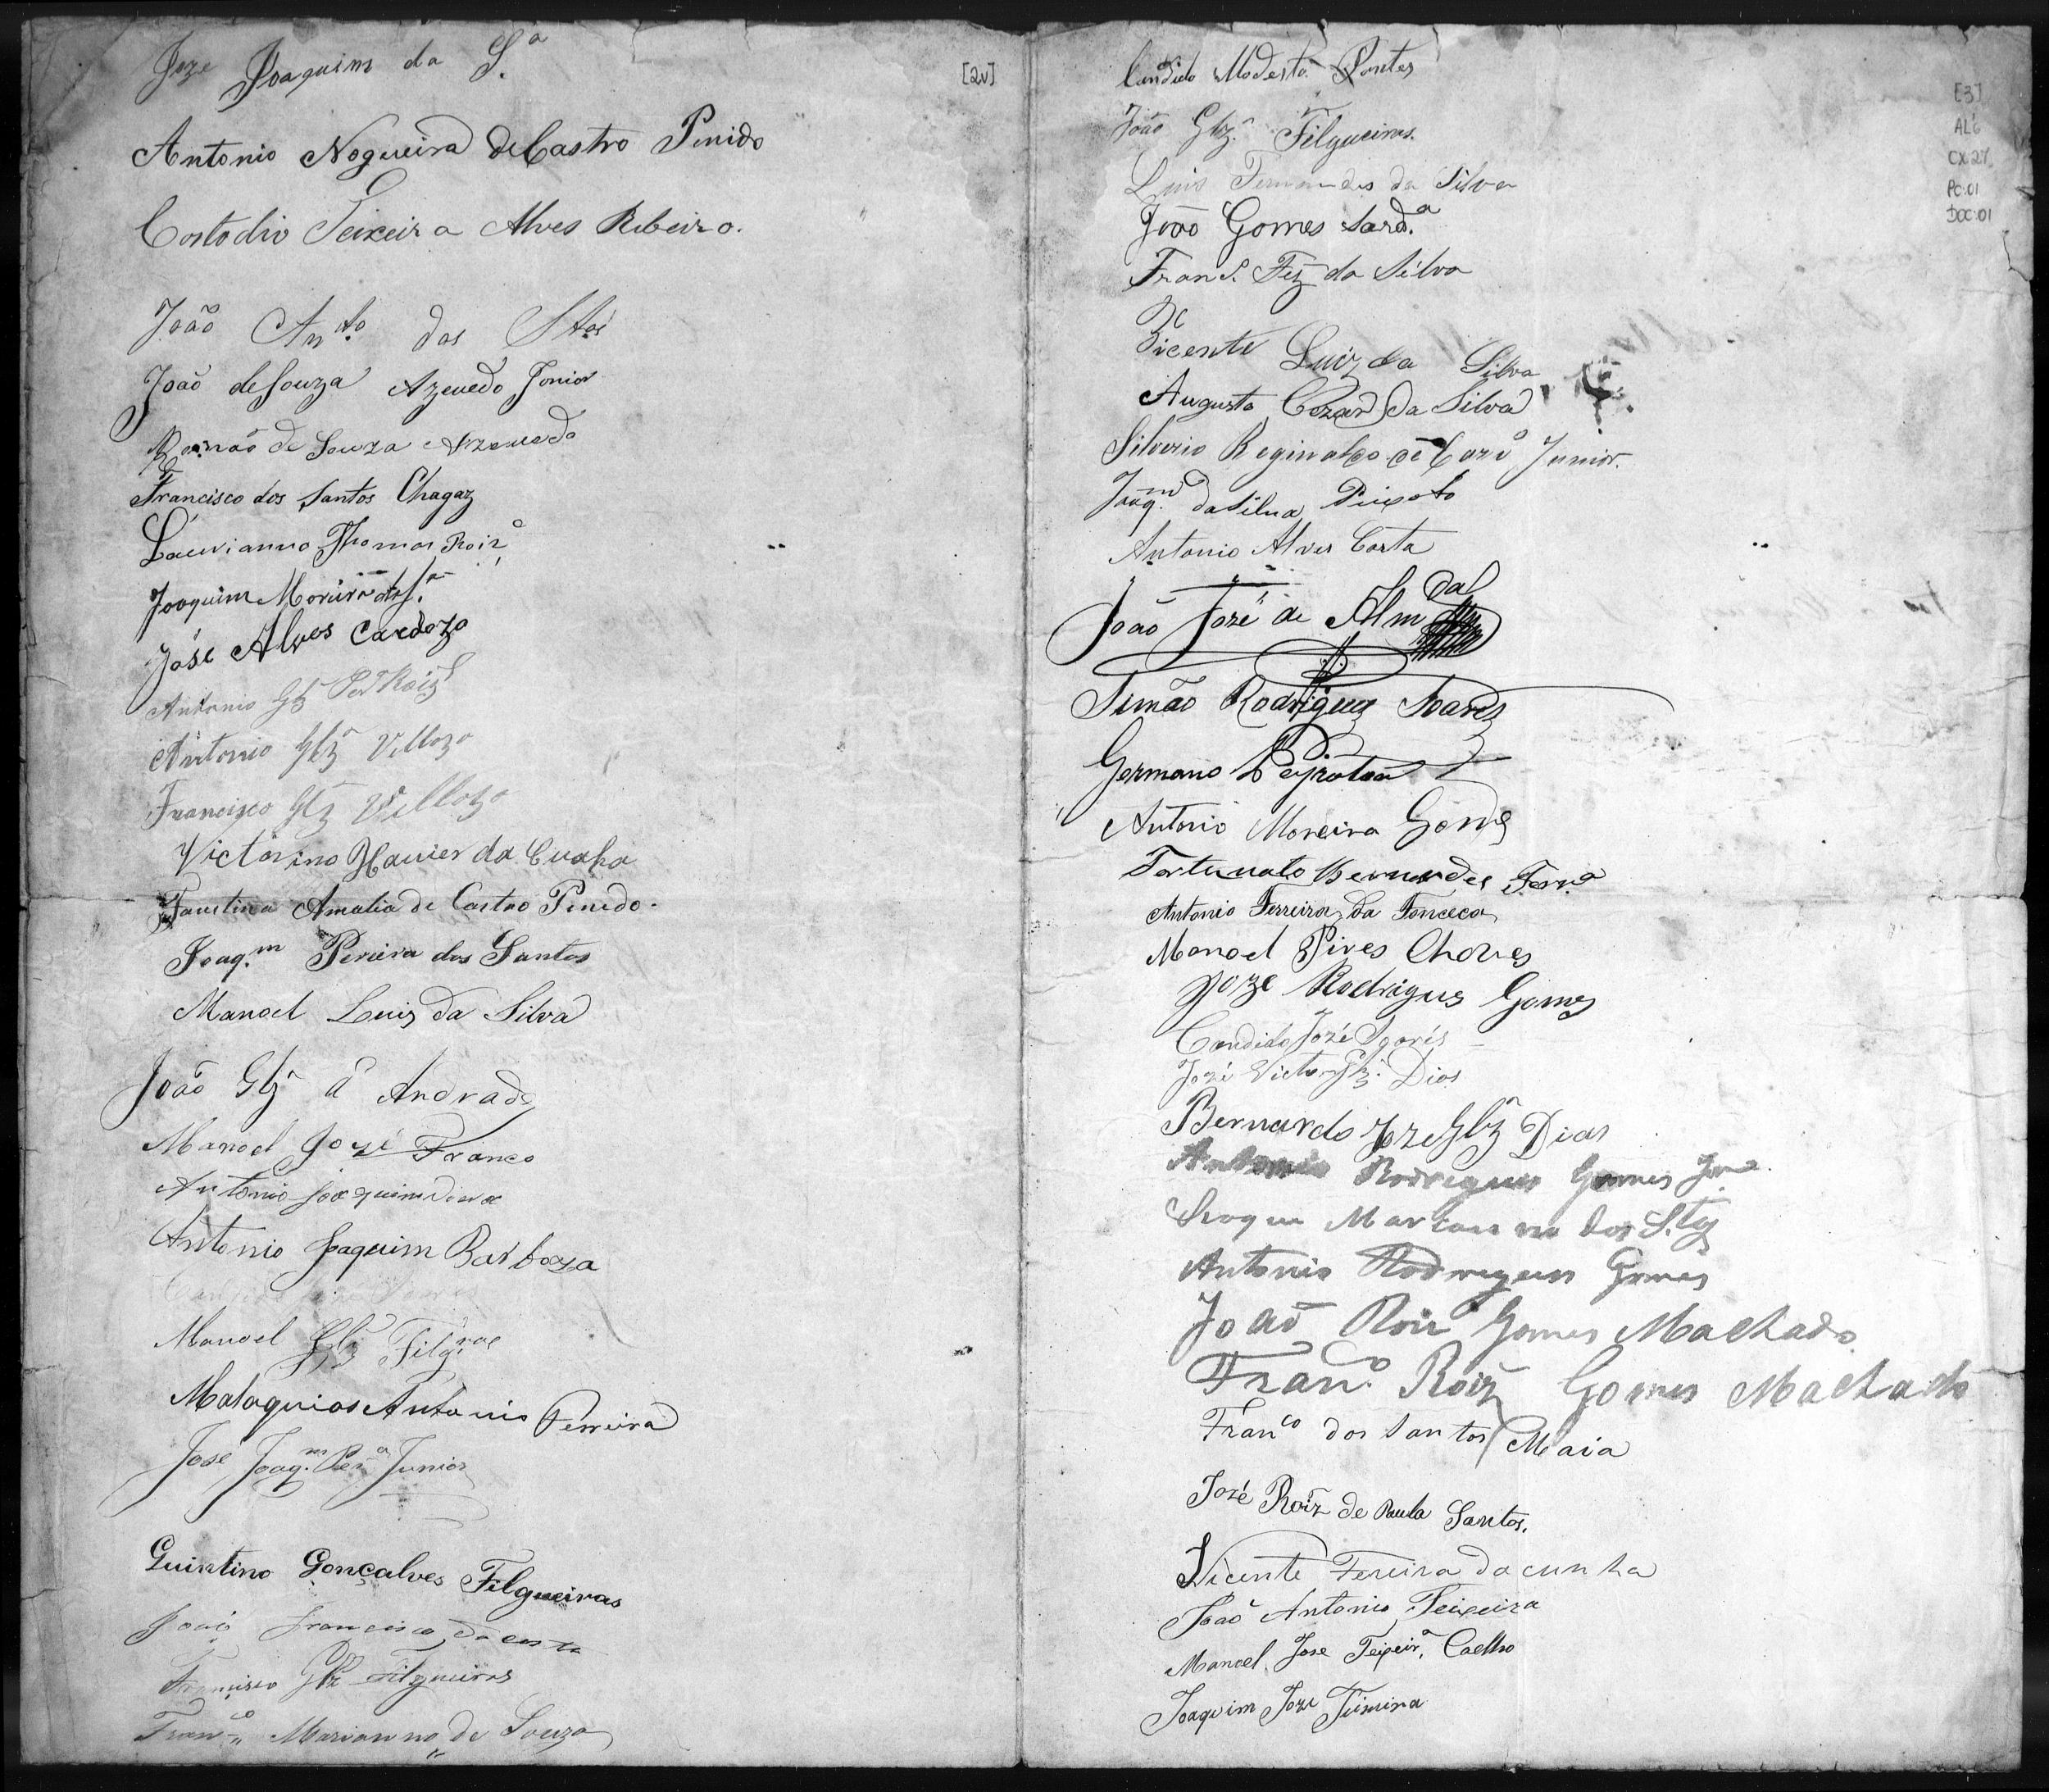 Joze Joaquim da S.ª
[2v]
Antonio Nogueira de Castro Penido
Costodio Teixeira Alves Ribeiro.
João Anto. dos Stos
João de Souza Azevedo Junior
Romão de Souza Azevedo
Francisco dos Santos Chagaz
Thomas Roiz
Joaquim Moreira da S.ª
José Alves Cardozo
Antonio Glz Roiz
Antonio Glz Vellozo
Francisco Glz Vellozo
Victorino Xavier da Cunha
Faustina Amalia de Castro Penedo.
Joaq.m Pereira dos Santos
Manoel Luis da Silva
João Glz d' Andrade
Manoel Jozé Franco
Antonio Joaquim
Antonio Joaquim Barboza
Manoel Glz Filg.ras
Malaquias Antonio Ferreira
José Joaq.m Per.ª Junior
Quintino Gonçalves Filgueiras
João Francisco da Costa
Francisco Glz Filgueiras
Fran.co Marianno de Souza
Candido Modesto Pontes
João Glz. Filgueiras.
Luis Fernandes da Silva
João Gomes Sard.ª
Fran.co Fez da Silva
Vicente Luiz da Silva
Augusto Cezar da Silva
Silverio Reginaldo de Junior.
Joaq.m da Silva Peixoto
Antonio Alves Costa
João Jozé de Alm.da
Simão Rodrigues Soares
Germano
Antonio Moreira Gomes
Fortunato Bernardes Ferr.ª
Antonio Ferreira da Fonceca
Manoel Pires Chaves
Joze Rodrigus Gomes
Candido Jozé Soares
Jozé Victor Glz. Dias
Bernardo Joze Glz Dias
Antonio Rodrigues Gomes Jor.
Roque Marianno dos S.tos
Antonio Rodrigues Gomes
João Roiz Gomes Machado
Fran.co Roiz Gomes Machado
Fran.co dos Santos Maia
Jozé Roiz de Paula Santos.
Vicente Fereira da cunha
João Antonio Teixeira
Manoel Jose Teixeir.ª Coelho
Joaquim Joze Teixeira
[3]
AL6
CX.27
PC.01
DOC.01